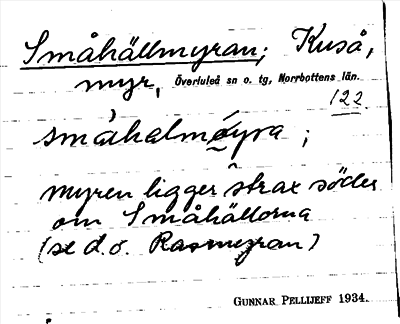 Småhällmyran; Kuså,
myr, Överluleå sn o. tg, Norrbottens län.
122.
småhalmøyra ;
myren ligger strax söder
om Småhällorna
(se d.o. Rasmyran)
GUNNAR PELLIJEFF 1934.